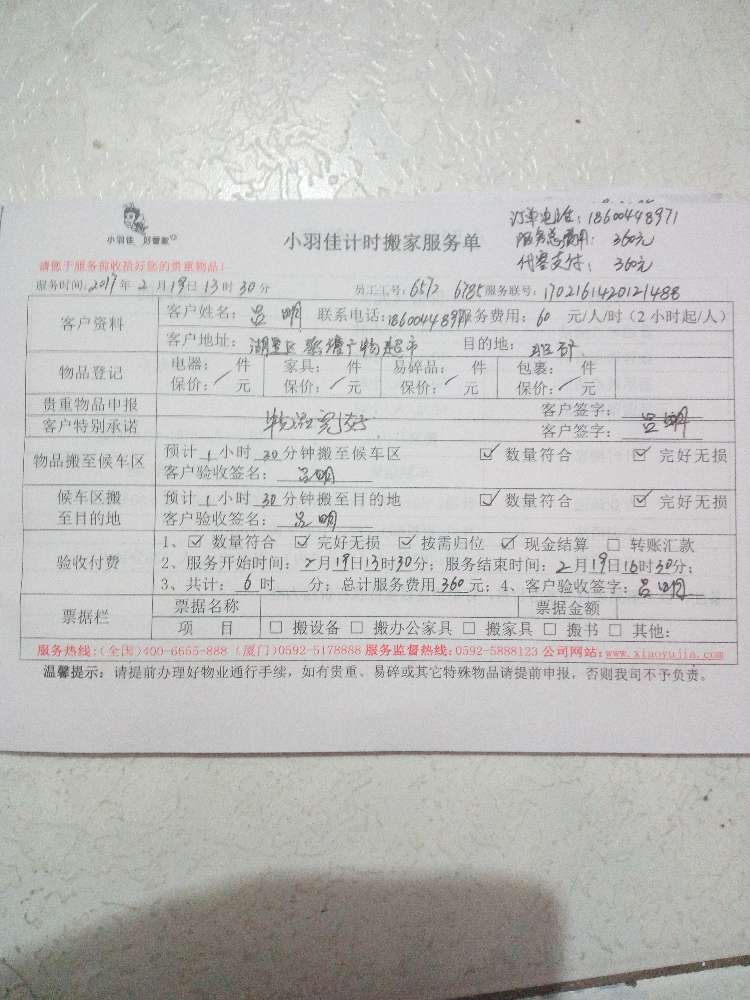 订单电话：18600448971
服务总费用：360元
代客支付：360元
小羽佳 好管家
小羽佳计时搬家服务单
请您于服务前收拾好您的贵重物品！
服务时间：2017年2月19日13时30分 员工工号：6572 6785 服务联号：1702161420121488
客户资料
客户姓名：吕明 联系电话：18600448971 服务费用：60 元/人/时（2小时起/人）
客户地址：湖里区 超市 目的地：
物品登记
电器： 件 家具： 件 易碎品： 件 包裹： 件
保价： 元 保价： 元 保价： 元 保价： 元
贵重物品申报 客户签字：
客户特别承诺 物品完好 客户签字：吕明
物品搬至候车区
预计1小时30分钟搬至候车区 ☑数量符合 ☑完好无损
客户验收签名：吕明
候车区搬至目的地
预计1小时30分钟搬至目的地 ☑数量符合 ☑完好无损
客户验收签名：吕明
验收付费
1、☑数量符合 ☑完好无损 ☑按需归位 ☑现金结算 □转账汇款
2、服务开始时间：2月19日13时30分；服务结束时间：2月19日16时30分；
3、共计：6时____分；总计服务费用360元；4、客户验收签字：吕明
票据栏
票据名称 票据金额
项 目 □搬设备 □搬办公家具 □搬家具 □搬书 □其他：
服务热线：(全国)400-6665-888 (厦门)0592-5178888 服务监督热线：0592-5888123 公司网站：www.xiaoyujia.com
温馨提示：请提前办理好物业通行手续，如有贵重、易碎或其它特殊物品请提前申报，否则我司不予负责。